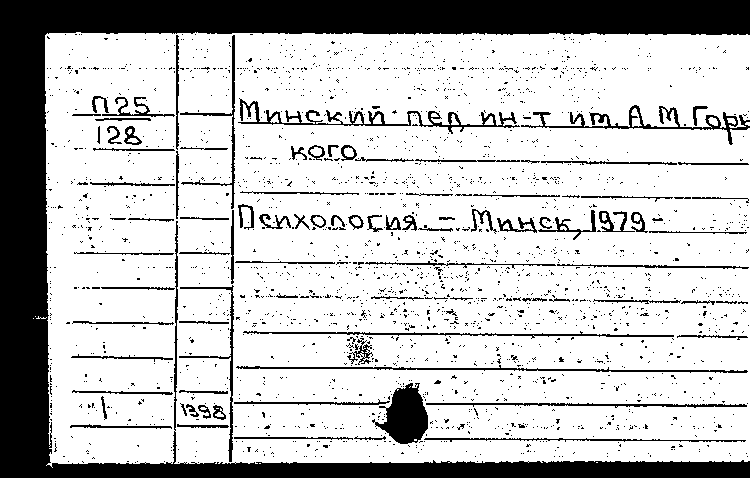 П25
128
Минский пед. ин-т им. А. М. Горь
кого.
Психология. – Минск, 1979 –
1 1398